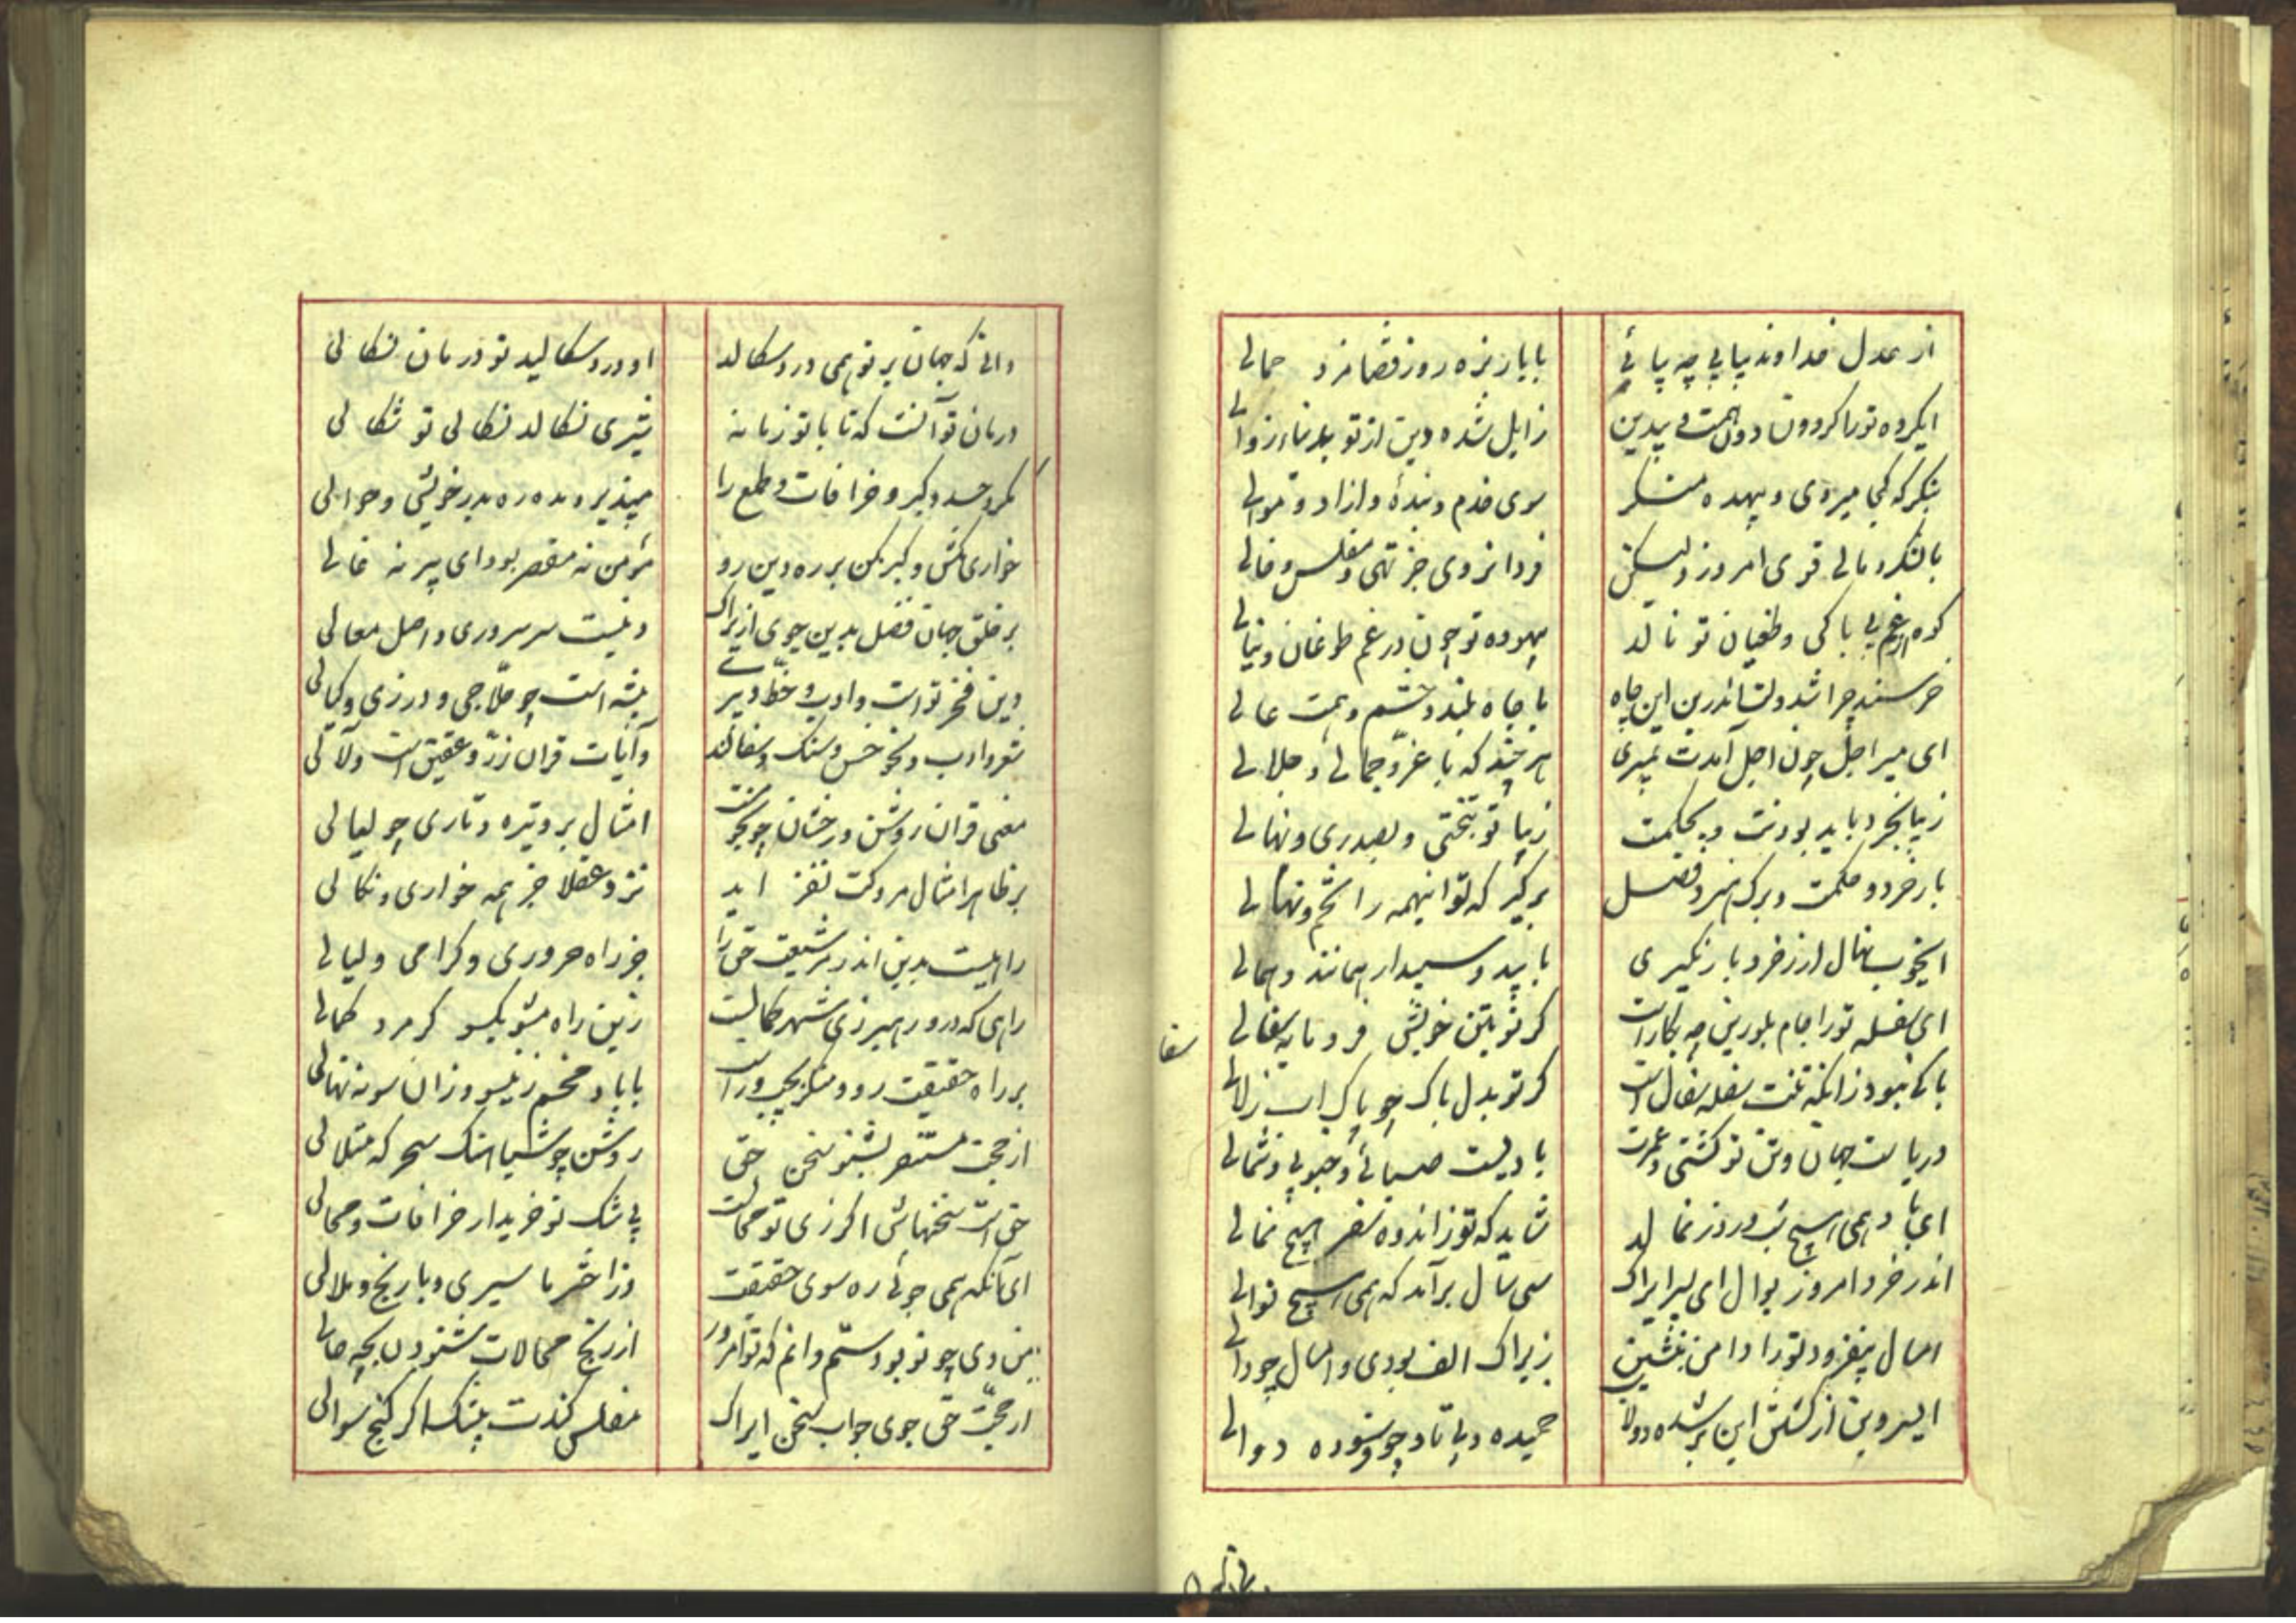 از عدل خداوند بیابی چه بیائی با بار بزه روز قضا مزد حمالی
ایکرده تورا کردون دون همت و بیدین زایل شده دین از تو بدنیاء زوالی
بنکر که کجا میروی و بیهده منکر سوی خدم و بنده و ازاد و موالی
با لشکر و مالی قوی امروز ولیکن فردا نروی جز تهی و مفلس و خالی
کوه از غم بی باکی و طغیان تو نالد بیهوده تو چون در غم طوغان و ینالی
خرسند چرا شد دلت اندرین این چاه با جاه بلند و حشم و همت عالی
ای میر اجل چون اجل آمدت بمیری هر چند که با عز و جمالی و جلالی
زیبا بخرد باید بودنت و بحکمت زیبا تو بتختی و بصدری و نهالی
بار خرد و حکمت و برک هنر و فضل برکیر که تو اینهمه را تخم و نهالی
ایخوب نهال ار ز خرد بار نکیری با بید و سپیدار همانند و همالی
ای سفله تورا جام بلورین چه بکار است کر تو بتن خویش فرومایه سفالی
باکی نبود زانکه تنت سفله سفال است کر تو بدل پاک چو پاک اب زلالی
دریاست جهان و تن تو کشتی و عمرت بادیست صبائی و جنوبی و شمالی
ای باد همی هیچ شب و روز نمالد شاید که تو ز اندوه سفر هیچ نمالی
اندر خرد امروز بوال ای پسر ایراک سی سال برآمد که همی هیچ نوالی
امسال بیفزود تورا دامن بیشین زیراک الف بودی و امسال چو دالی
ای سرو بن از کشتن این بر شده دولاب خمیده و بی تاب چو فرسوده دوالی
سفا
دانی که جهان بر تو همی درد سکالد او درد سکالید تو درمان نسکالی
درمان تو آنست که تا با تو زمانه شیری نسکالد نسکالی تو شکالی
مکر و حسد و کبر و خرافات و طمع را مپذیر و مده ره بدر خویش و حوالی
خواری مکش و کبر مکن بر ره دین رو مؤمن نه مقصر بود ای پیر نه غالی
بر خلق جهان فضل بدین جوی ازیراک دینست سر سروری و اصل معالی
دین فخر تو است و ادب و خط دبیری پیشه است چو حلاجی و درزی و کیالی
شعر و ادب و نحو خس و سنک و سفالند و آیات قران زر و عقیق است و لآلی
معنی قران روشن و رخشان چو نجومست امثال بر و تیره و تاری چو لیالی
بر ظاهر امثال مرو کت نفزاید نزد عقلا جز همه خواری و نکالی
راهیست بدین اندر مر شیعت حق را جز راه حروری و کرامی و کیالی
راهی که درو رهبر زی شهر کمالست زین راه مشو یکسو کر مرد کمالی
بر راه حقیقت رو و منکر بچپ و راست با باد مخم زینسو و زان سو نه نهالی
از حجت مستنصر بشنو سخن حق روشن چو شباهنک سحر که متلالی
حق است سخنهاش اکر زی تو محالست بی شک تو خریدار خرافات و محالی
ای آنکه همی جوئی ره سوی حقیقت وز اخشر ما سیری و با رنج و ملالی
من دی چو تو بودستم دانم که تو امروز از رنج محالات شنودن بچه حالی
از حجت حق جوی جواب سخن ایراک مفلس کندت بی شک اکر کنج سوالی